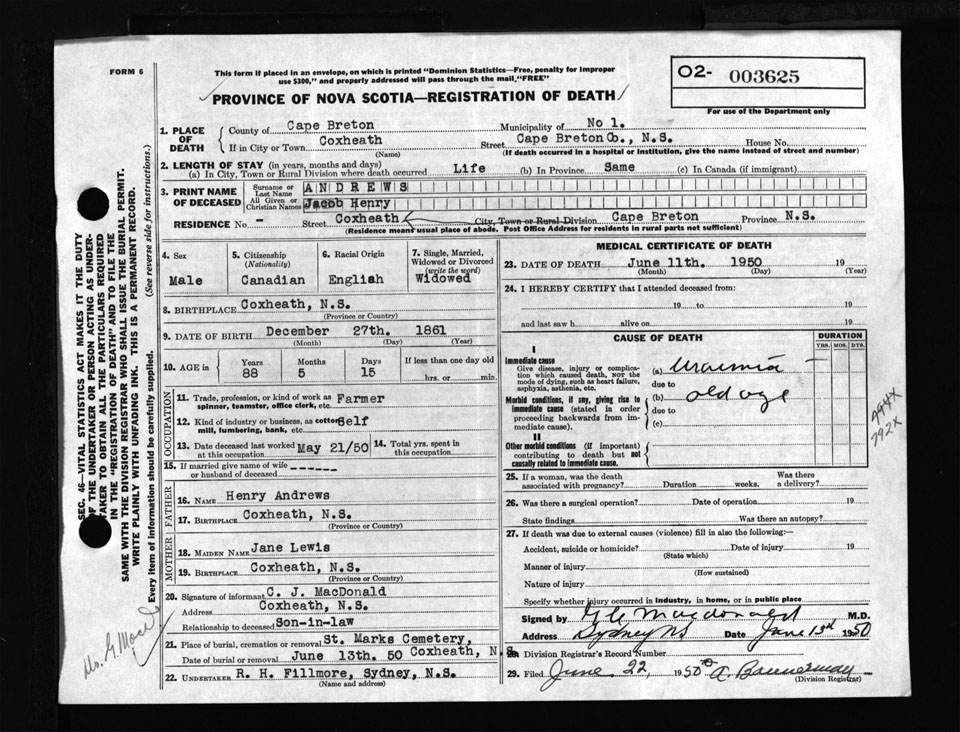 FORM 6
This form if placed in an envelope, on which is printed "Dominion Statistics—Free, penalty for improper
use $300," and properly addressed will pass through the mail, "FREE"
PROVINCE OF NOVA SCOTIA—REGISTRATION OF DEATH
O2- 003625
For use of the Department only
SEC. 46—VITAL STATISTICS ACT MAKES IT THE DUTY
OF THE UNDERTAKER OR PERSON ACTING AS UNDER-
TAKER TO OBTAIN ALL THE PARTICULARS REQUIRED
IN THE "REGISTRATION OF DEATH" AND TO FILE THE
SAME WITH THE DIVISION REGISTRAR WHO SHALL ISSUE THE BURIAL PERMIT.
WRITE PLAINLY WITH UNFADING INK. THIS IS A PERMANENT RECORD.
Every item of information should be carefully supplied. (See reverse side for instructions.)
1. PLACE OF DEATH
County of Cape Breton Municipality of No 1.
If in City or Town Coxheath Street Cape Breton Co., N.S. House No.
(Name) (If death occurred in a hospital or institution, give the name instead of street and number)
2. LENGTH OF STAY (in years, months and days)
(a) In City, Town or Rural Division where death occurred Life (b) In Province Same (c) In Canada (if immigrant)
3. PRINT NAME OF DECEASED
Surname or Last Name ANDREWS
All Given or Christian Names Jacob Henry
RESIDENCE No. - Street Coxheath City, Town or Rural Division Cape Breton Province N.S.
(Residence means usual place of abode. Post Office Address for residents in rural parts not sufficient)
4. Sex Male
5. Citizenship (Nationality) Canadian
6. Racial Origin English
7. Single, Married, Widowed or Divorced (write the word) Widowed
8. BIRTHPLACE Coxheath, N.S.
(Province or Country)
9. DATE OF BIRTH December 27th. 1861
(Month) (Day) (Year)
10. AGE in Years 88 Months 5 Days 15 If less than one day old hrs. or min.
OCCUPATION
11. Trade, profession, or kind of work as spinner, teamster, office clerk, etc. Farmer
12. Kind of industry or business, as cotton mill, lumbering, bank, etc. Self
13. Date deceased last worked at this occupation May 21/50 14. Total yrs. spent in this occupation
15. If married give name of wife or husband of deceased ------
FATHER
16. NAME Henry Andrews
17. BIRTHPLACE Coxheath, N.S.
(Province or Country)
MOTHER
18. MAIDEN NAME Jane Lewis
19. BIRTHPLACE Coxheath, N.S.
(Province or Country)
20. Signature of informant C. J. MacDonald
Address Coxheath, N.S.
Relationship to deceased Son-in-law
21. Place of burial, cremation or removal St. Marks Cemetery,
Date of burial or removal June 13th. 50 Coxheath, N.S.
22. UNDERTAKER R. H. Fillmore, Sydney, N.S.
(Name and address)
MEDICAL CERTIFICATE OF DEATH
23. DATE OF DEATH June 11th. 1950 19
(Month) (Day) (Year)
24. I HEREBY CERTIFY that I attended deceased from:
19 to 19
and last saw h alive on 19
CAUSE OF DEATH DURATION
YRS. MOS. DYS.
I
Immediate cause
Give disease, injury or complica-
tion which caused death, NOT the
mode of dying, such as heart failure,
asphyxia, asthenia, etc.
(a) Uraemia
due to
Morbid conditions, if any, giving rise to
immediate cause (stated in order
proceeding backwards from im-
mediate cause).
(b) old age
due to
(c)
II
Other morbid conditions (if important)
contributing to death but not
causally related to immediate cause.
794X
792X
25. If a woman, was the death associated with pregnancy? Duration weeks. Was there a delivery?
26. Was there a surgical operation? Date of operation 19
State findings Was there an autopsy?
27. If death was due to external causes (violence) fill in also the following:—
Accident, suicide or homicide? Date of injury 19
(State which)
Manner of injury
(How sustained)
Nature of injury
Specify whether injury occurred in industry, in home, or in public place
Signed by G C Macdonald M.D.
Address Sydney NS Date June 13th 1950
28. Division Registrar's Record Number
29. Filed June 22, 1950 A. Bannerman
(Division Registrar)